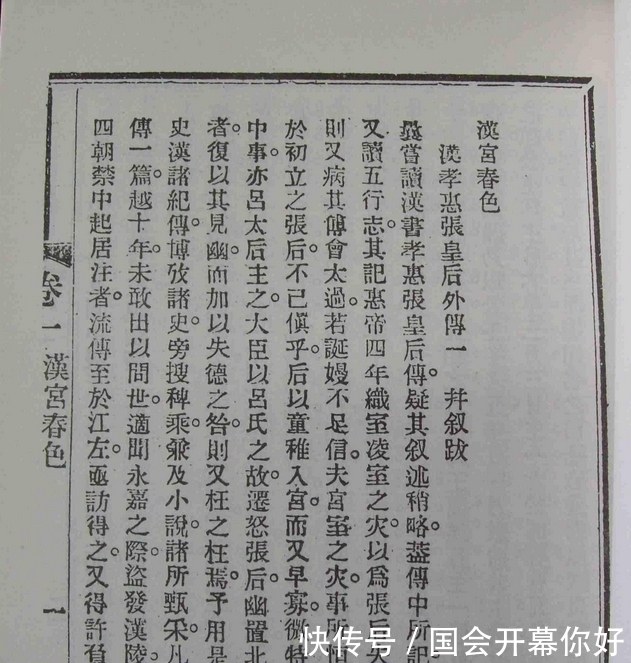 漢宮春色
漢孝惠張皇后外傳一 幷叙跋
曩嘗讀漢書孝惠張皇后傳。疑其叙述稍略。葢傳中所記
又讀五行志。其記惠帝四年織室凌室之灾。以爲張后
則又病其傅會太過。若誕嫚不足信。夫宮室之灾。事所
於初立之張后。不已傎乎。后以童稚入宮。而又早寡。微特
中事。亦呂太后主之。大臣以呂氏之故。遷怒張后。幽置北
者。復以其見幽而加以失德之咎。則又枉之枉焉。予用是
史漢諸紀傳。博攷諸史。旁搜稗乘。兼及小說。諸所甄采。凡
傳一篇。越十年。未敢出以問世。適聞永嘉之際。盜發漢陵。
四朝禁中起居注者。流傳至於江左。亟訪得之。又得許負
卷一 漢宮春色 一
快传号 / 国会开幕你好